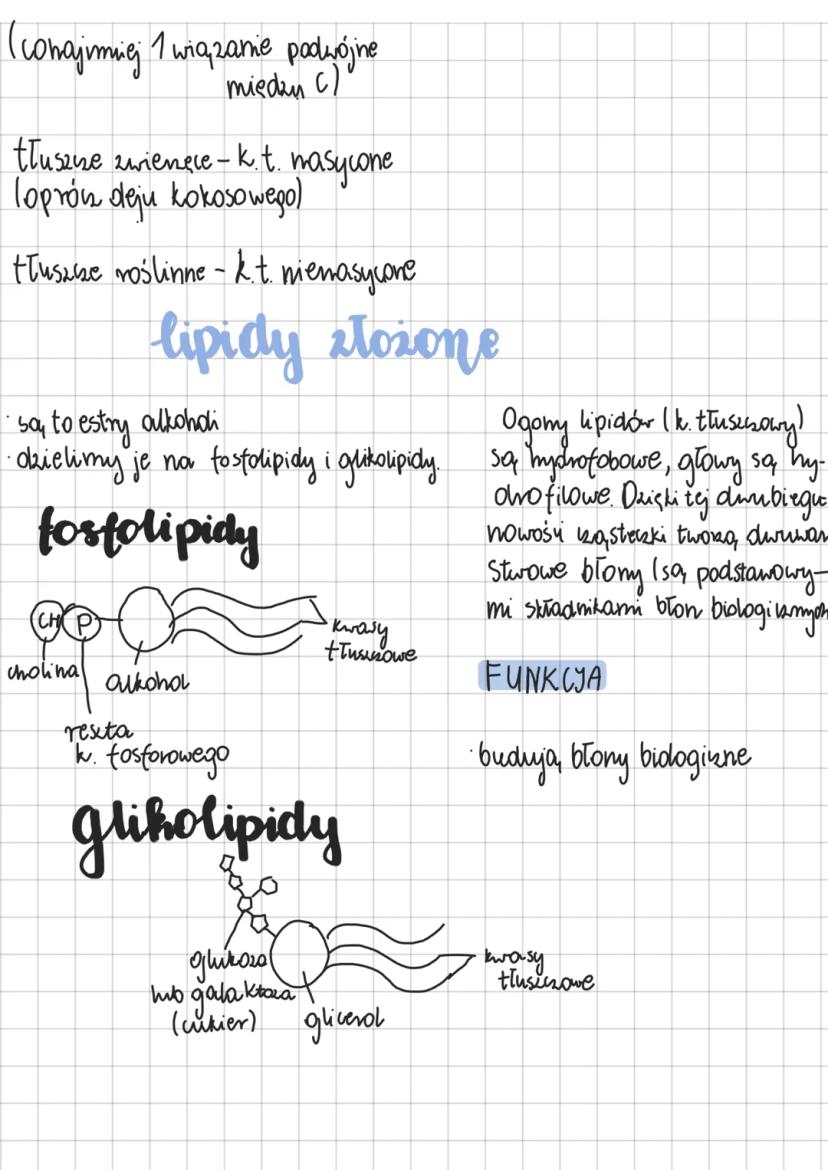 (conajmniej 1 wiązanie podwójne
między C)
tłuszcze zwierzęce - k.t. nasycone
(oprócz oleju kokosowego)
tłuszcze roślinne - k.t. nienasycone
lipidy złożone
· są to estry alkoholi
· dzielimy je na fosfolipidy i glikolipidy.
fosfolipidy
CH P
kwasy
tłuszczowe
cholina
alkohol
reszta
k. fosforowego
Ogony lipidów (k. tłuszczowy)
są hydrofobowe, głowy są hy-
drofilowe. Dzięki tej dwubiegu
nowości cząsteczki tworzą dwuwar
stwowe błony (są podstawowy-
mi składnikami błon biologicznych
FUNKCJA
· budują błony biologiczne
glikolipidy
glukoza
lub galaktoza
(cukier)
glicerol
kwasy
tłuszczowe